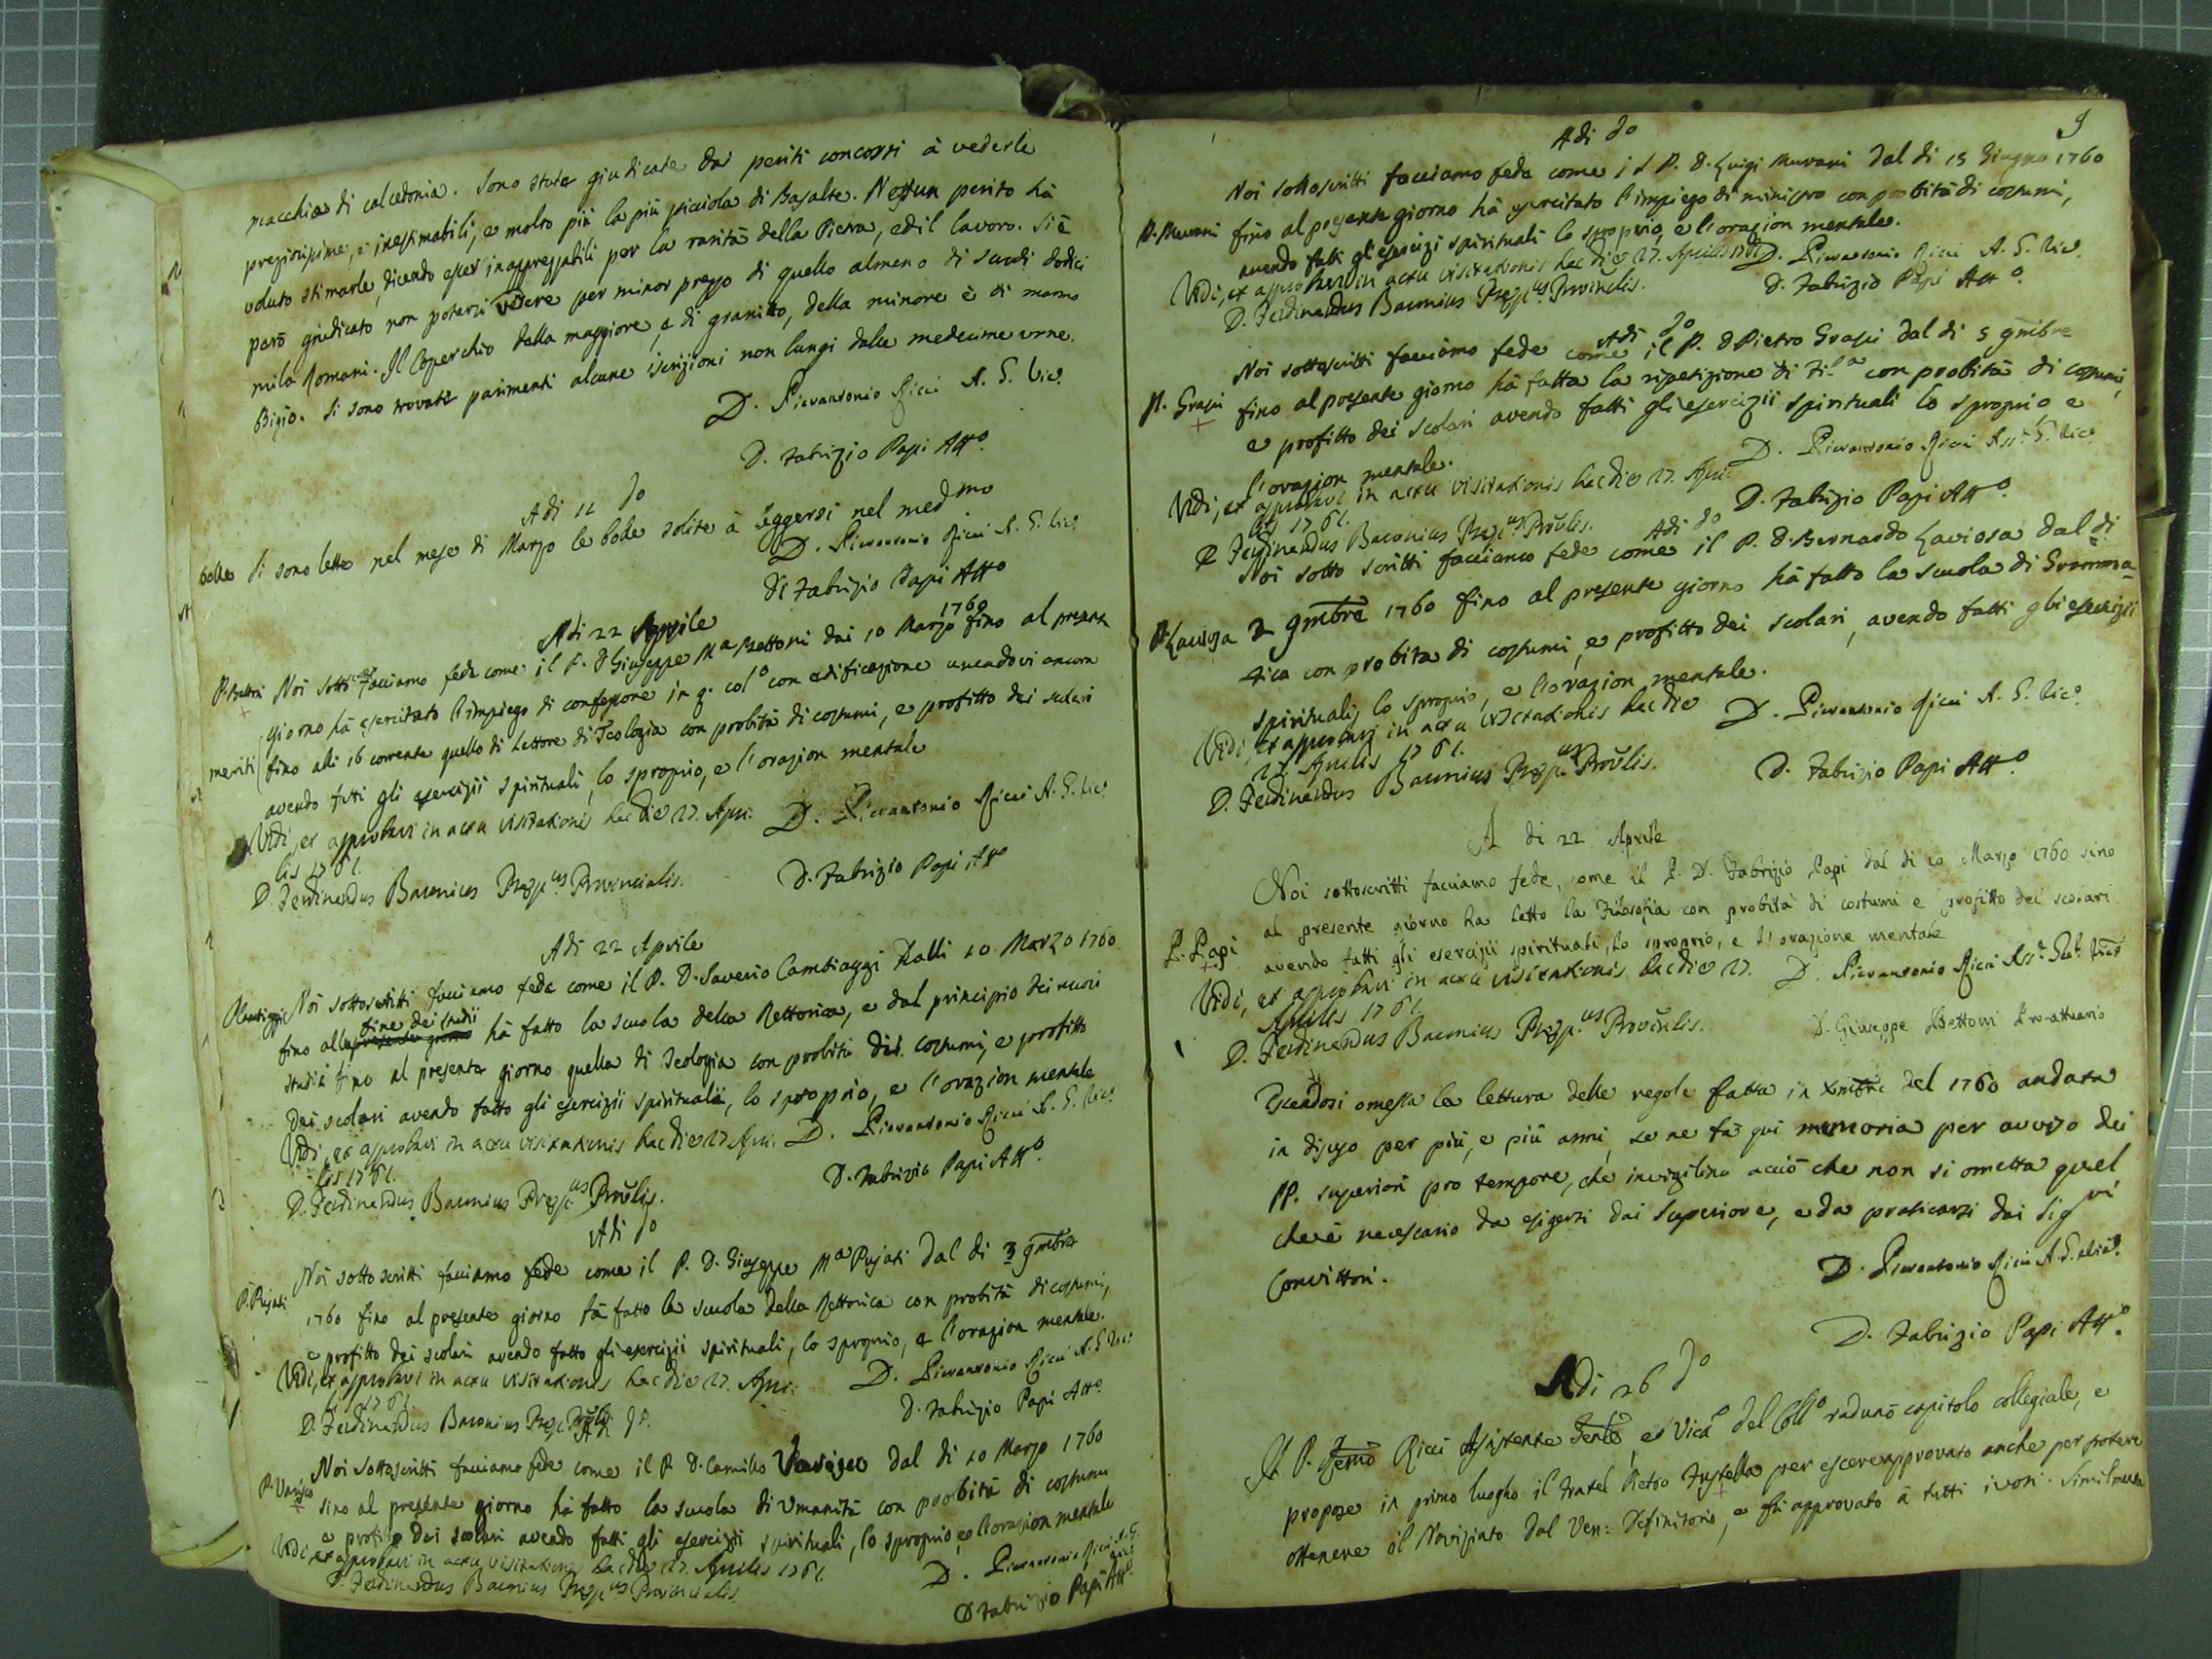 macchia di calcedonia. Sono state giudicate dai periti concorsi à vederle
preziosissime, e inestimabili, e molto più la più picciola di Basalte. Nessun perito hà
voluto stimarle, dicendo esser inapprezzabili per la rarità della Pietra, ed il lavoro. Si è
però giudicato non potersi vedere per minor prezzo di quello almeno di scudi dodici
mila Romani. Il Coperchio della maggiore è di granitto, della minore è di marmo
Bigio. Si sono trovate parimenti alcune iscrizioni non lungi dalle medesime urne.
D. Pierantonio Ricci A. G. Vic.º
D. Fabrizio Papi Att.º
Adi 12 dº
bolle Si sono lette nel mese di Marzo le bolle solite à leggersi nel med.mo
D. Pierantonio Ricci A. G. Vic.º
D. Fabrizio Papi Att.º
Adi 22 Aprile
P. Bettoni Noi sottti facciamo fede come il P. D Giuseppe Mª Bettoni dai 10 Marzo 1760 fino al presente
giorno hà esercitato l'impiego di confessore in q.º colº con edificazione avendovi ancora
meriti fino alli 16 corrente quello di Lettore di Teologia con probità di costumi, e profitto dei scolari
avendo fatti gli esercizii spirituali, lo sproprio, e l'orazion mentale
Vidi, et approbavi in actu visitationis hac die 27. Apri: D. Pierantonio Ricci A. G. Vic.º
lis 1761.
D. Ferdinandus Baconius Præp.us Provincialis. D. Fabrizio Papi Attº
Adi 22 Aprile
P. Cambiaggi Noi sottoscritti facciamo fede come il P. D. Saverio Cambiaggi dalli 10 Marzo 1760
fino alla presente giorno fine dei studii hà fatto la scuola della Rettorica, e dal principio dei nuovi
studii fino al presente giorno quella di Teologia con probità di costumi, e profitto
dei scolari avendo fatto gli esercizii spirituali, lo sproprio, e l'orazion mentale
Vidi, et approbavi in actu visitationis hac die 27 Apri: D. Pierantonio Ricci A. G. Vic.º
lis 1761.
D. Ferdinandus Baconius Præp.us Prov̄lis. D. Fabrizio Papi Att.º
Adi dº
P. Pujati Noi sottoscritti facciamo fede come il P. D. Giuseppe Mª Pujati dal di 3 9mbre
1760 fino al presente giorno hà fatto la scuola della Rettorica con probità di costumi,
e profitto dei scolari avendo fatto gli esercizii spirituali, lo sproprio, e l'orazion mentale.
Vidi, et approbavi in actu visitationis hac die 27. Apri: D. Pierantonio Ricci A. G. Vic.º
lis 1761.
D. Fabrizio Papi Att.º
D. Ferdinandus Baconius Præp. Prov̄lis Adi dº.
P. Varisco Noi sottoscritti facciamo fede come il P. D. Camillo Varisco dal di 10 Marzo 1760
sino al presente giorno hà fatto la scuola di Vmanità con probità di costumi
e profitto dei scolari avendo fatti gli esercizii spirituali, lo sproprio, e l'orazion mentale
Vidi, et approbavi in actu visitationis hac die 27. Aprilis 1761. D. Pierantonio Ricci A. G. Vicº
D. Ferdinandus Baconius Præp.us Provincialis. D Fabrizio Papi Att.º
9
Adi dº
Noi sottoscritti facciamo fede come il P. D. Luigi Murani dal di 15 Giugno 1760
P. Murani fino al presente giorno hà esercitato l'impiego di ministro con probità di costumi,
avendo fatti gli esercizi spirituali lo sproprio, e l'orazion mentale.
Vidi, et approbavi in actu visitationis hac die 27. Aprilis 1761 D. Pierantonio Ricci A. G. Vicº.
D. Ferdinandus Baconius Præp.us Provincialis. D. Fabrizio Papi Att.º
Adi dº
Noi sottoscritti facciamo fede come il P. D Pietro Grassi dal di 5 9mbre
P. Grassi fino al presente giorno hà fatta la ripetizione di Fi.ª con probità di costumi,
e profitto dei scolari avendo fatti gli esercizii spirituali lo sproprio, e
l'orazion mentale. D. Pierantonio Ricci Ass. G. Vic.
Vidi, et approbavi in actu visitationis hac die 27. Apri:
lis 1761. D. Fabrizio Papi Att.º
D Ferdinandus Baconius Præp.us Prov̄lis. Adi dº
Noi sotto scritti facciamo fede come il P. D. Bernardo Laviosa dal di
P. Laviosa 2 9mbre 1760 fino al presente giorno hà fatto la scuola di Gramma
tica con probita di costumi, e profitto dei scolari, avendo fatti gli esercizii
spirituali, lo sproprio, e l'orazion mentale.
Vidi, et approbavi in actu visitationis hac die D. Pierantonio Ricci A. G. Vicº
27. Aprilis 1761.
D. Ferdinandus Baconius Præp.us Prov̄lis. D. Fabrizio Papi Att.º
A di 22 Aprile
Noi sottoscritti facciamo fede, come il P. D. Fabrizio Papi dal di 10 Marzo 1760 sino
al presente giorno ha letto la Filosofia con probità di costumi e profitto dei scolari
P. Papi avendo fatti gli esercizii spirituali, lo sproprio, e l'orazione mentale
Vidi, et approbavi in actu visitationis hac die 27. D. Pierantonio Ricci Ass.e Gen.le Vicº
Aprilis 1761.
D. Ferdinandus Baconius Præp.us Prov̄lis. D. Giuseppe Bettoni Pro-attuario
Essendosi omessa la lettura delle regole fatta in Xmbre del 1760 andata
in disuso per più, e più anni, se ne fà qui memoria per avviso dei
PP. superiori pro tempore, che invigilino acciò che non si ometta quel
che è necessario da esigersi dai Superiore, e da praticarsi dai Sigri
Convittori. D. Pierantonio Ricci A. G. e Vicº.
D. Fabrizio Papi Att.º
Adi 26 dº
Il P. Ricci Assistente Genle, e Vicº del Collº radunò capitolo collegiale, e
propose in primo luogho il Fratel Pietro per essere approvato anche per potere
ottenere il Noviziato dal Ven: Definitorio, e fù approvato à tutti i voti. Similmente